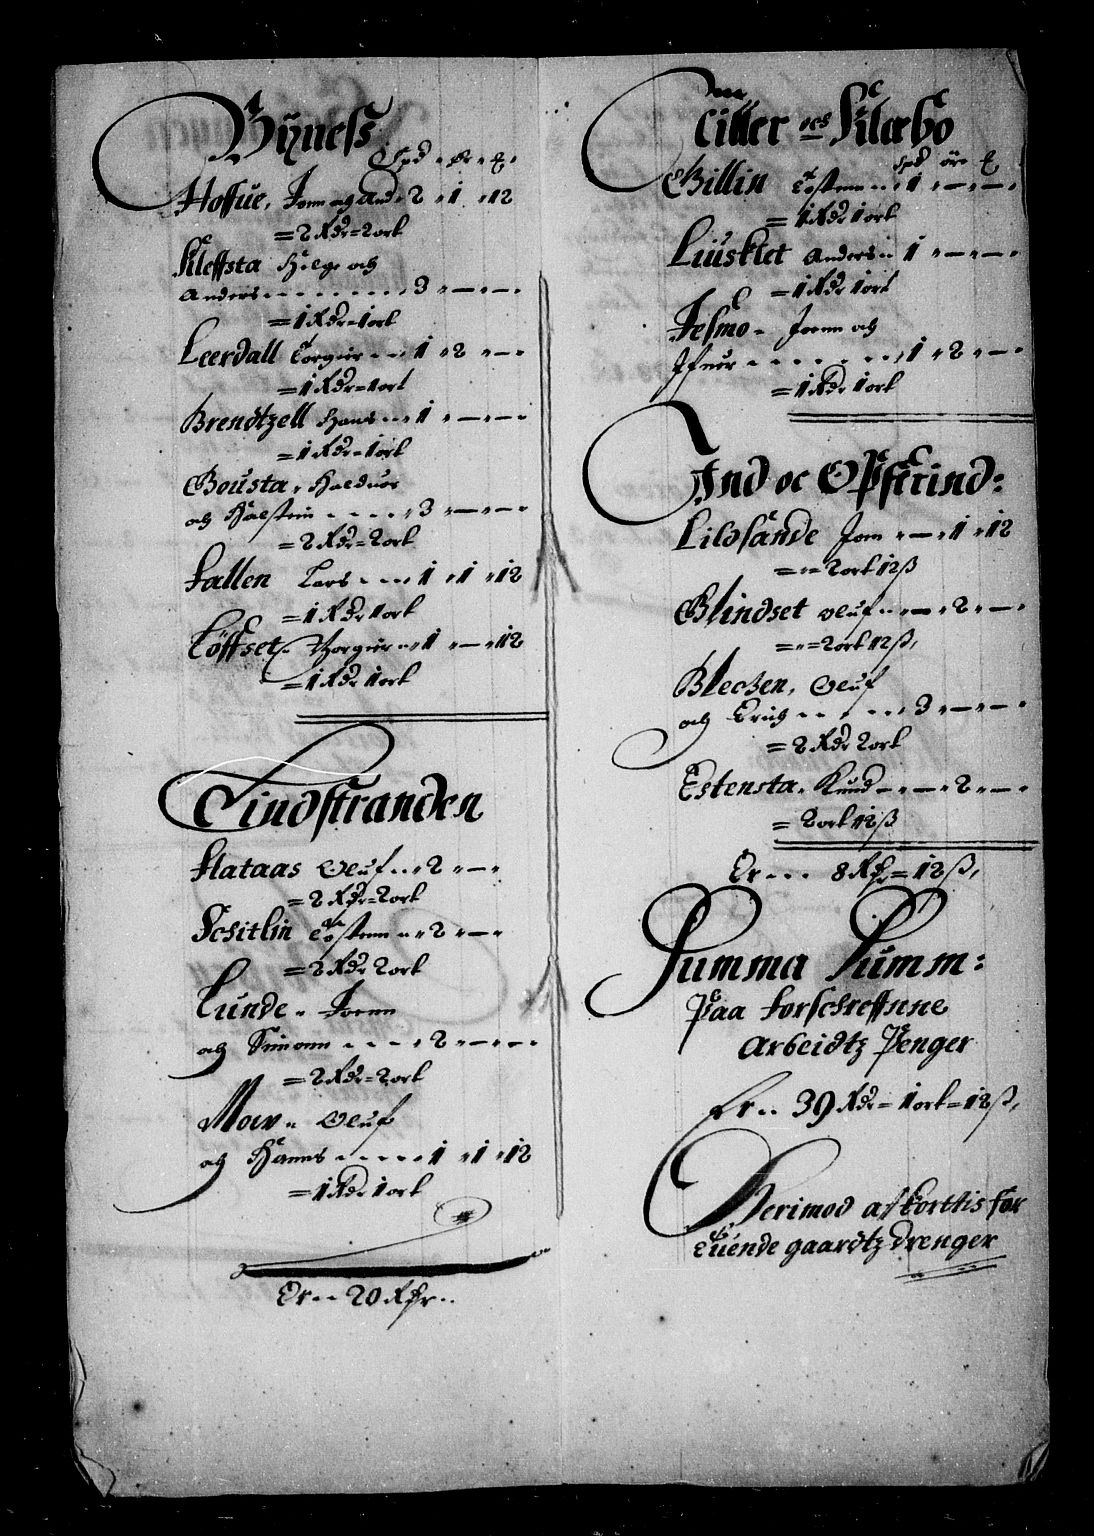 Byness
Spd - ör - ß -
Hoffue, Joen og And - 2 - 1 - 12
= 2 Rdr = 2 ort
Kleffsta Helge och
Anders - - - - - - - 3 - — - — -
= 1 Rdr = 1 ort
Leerdall Torgier - - - 1 - 2 - — -
= 1 Rdr = 1 ort
Brendtzell Hans - - - 1 - — - — -
= 1 Rdr = 1 ort
Bousta, Halduor
och Halstein - - - - - 3 - — - — -
= 2 Rdr = 2 ort
Fallen Lars - - - 1 - 1 - 12
= 1 Rdr 1 ort
Töffset - Torgier - - 1 - — - 12
= 1 Rdr 1 ort
Tindstranden
Flataas Oluf - - - 2 - — -
= 2 Rdr = 2 ort
Schitlin Tosten - - 2 - — -
= 2 Rdr 2 ort
Lunde - Joenn
och Simonn - - - - 2 - — - — -
= 2 Rdr = 2 ort
Moxn - Oluf
och Hanns - - - - - 1 - 1 - 12
= 1 Rdr 1 ort
Er - - 20 Rdr - -
Tiller och Klæbo
Spd ör ß
Billin Tosten - - - 1 - — - — -
= 1 Rdr 1 ort
Liusklet Anders - - 1 - — - — -
= 1 Rdr 1 ort
Tesmo - Joenn och
Ifuer - - - - - - - 1 - 2 - — -
= 1 Rdr 1 ort
Ind oc Opstrind:
Lidsande Jon - — - 1 - 12
= - = 2 ort 12 ß
Blindset Oluf - - — - 2 - — -
= - = 2 ort 12 ß,
Blechen, Oluf
och Erich - - - - - 3 - — - — -
= 2 Rdr 2 ort
Estensta - Knud - — - — - 2 - — -
= 2 ort 12 ß
Er - - - 8 Rdr = 12 ß,
Summa Summ:
Paa forschreffnne
Arbeidtz Penger
Er - - 39 Rdr = 1 ort = 12 ß,
Derimod afkorttis for
Euende gaardtz Drenger